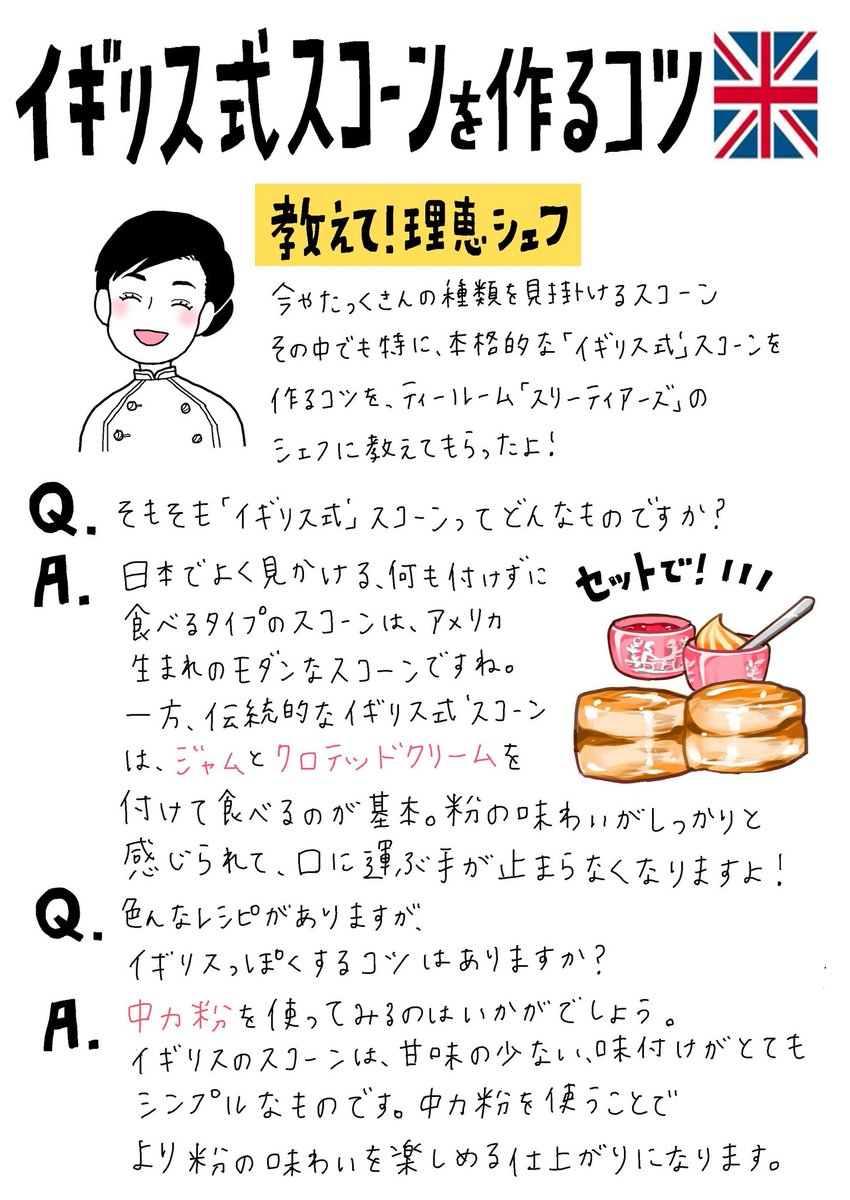 イギリス式スコーンを作るコツ
教えて！理恵シェフ
今やたっくさんの種類を見掛けるスコーン
その中でも特に、本格的な「イギリス式」スコーンを
作るコツを、ティールーム「スリーティアーズ」の
シェフに教えてもらったよ！
Q. そもそも「イギリス式」スコーンってどんなものですか？
A. 日本でよく見かける、何も付けずに
食べるタイプのスコーンは、アメリカ
生まれのモダンなスコーンですね。
一方、伝統的なイギリス式スコーン
は、ジャムとクロテッドクリームを
付けて食べるのが基本。粉の味わいがしっかりと
感じられて、口に運ぶ手が止まらなくなりますよ！
セットで！
Q. 色んなレシピがありますが、
イギリスっぽくするコツはありますか？
A. 中力粉を使ってみるのはいかがでしょう。
イギリスのスコーンは、甘味の少ない、味付けがとても
シンプルなものです。中力粉を使うことで
より粉の味わいを楽しめる仕上がりになります。